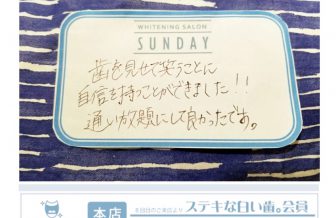 WHITENING SALON
SUNDAY
歯を見せて笑うことに
自信を持つことができました!!
通い放題にして良かったです。
本店
2回目のご来店より ステキな白い歯。会員